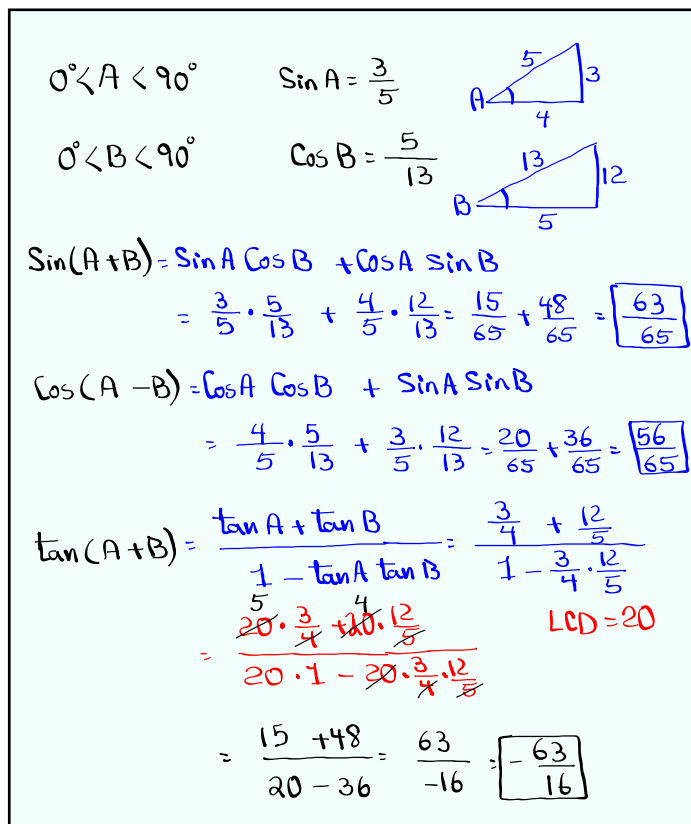 0°<A<90° Sin A = 3/5 5 3 A 4
0°<B<90° Cos B = 5/13 13 12 B 5
Sin(A+B) = Sin A Cos B + Cos A Sin B
= 3/5 · 5/13 + 4/5 · 12/13 = 15/65 + 48/65 = 63/65
Cos(A - B) = Cos A Cos B + Sin A Sin B
= 4/5 · 5/13 + 3/5 · 12/13 = 20/65 + 36/65 = 56/65
tan(A+B) = (tan A + tan B)/(1 - tan A tan B) = (3/4 + 12/5)/(1 - 3/4 · 12/5)
5 4
= (20 · 3/4 + 20 · 12/5)/(20 · 1 - 20 · 3/4 · 12/5) LCD = 20
= (15 + 48)/(20 - 36) = 63/-16 = -63/16